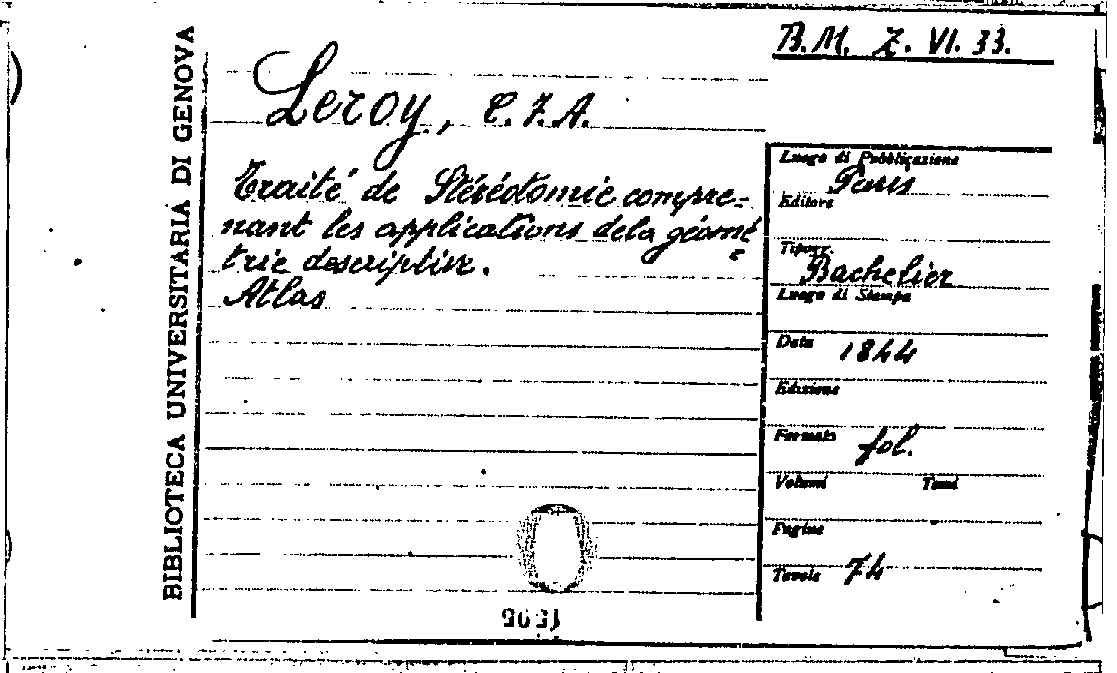 BIBLIOTECA UNIVERSITARIA DI GENOVA
B.M. Z. VI. 33.
Leroy, C.F.A.
Traité de Stéréotomie compre=
nant les applications de la géomé
=
trie descriptive.
Atlas
Luogo di Pubblicazione
Paris
Editore
Tipogr.
Bachelier
Luogo di Stampa
Data 1844
Edizione
Formato fol.
Volumi Tomi
Pagine
Tavole 74